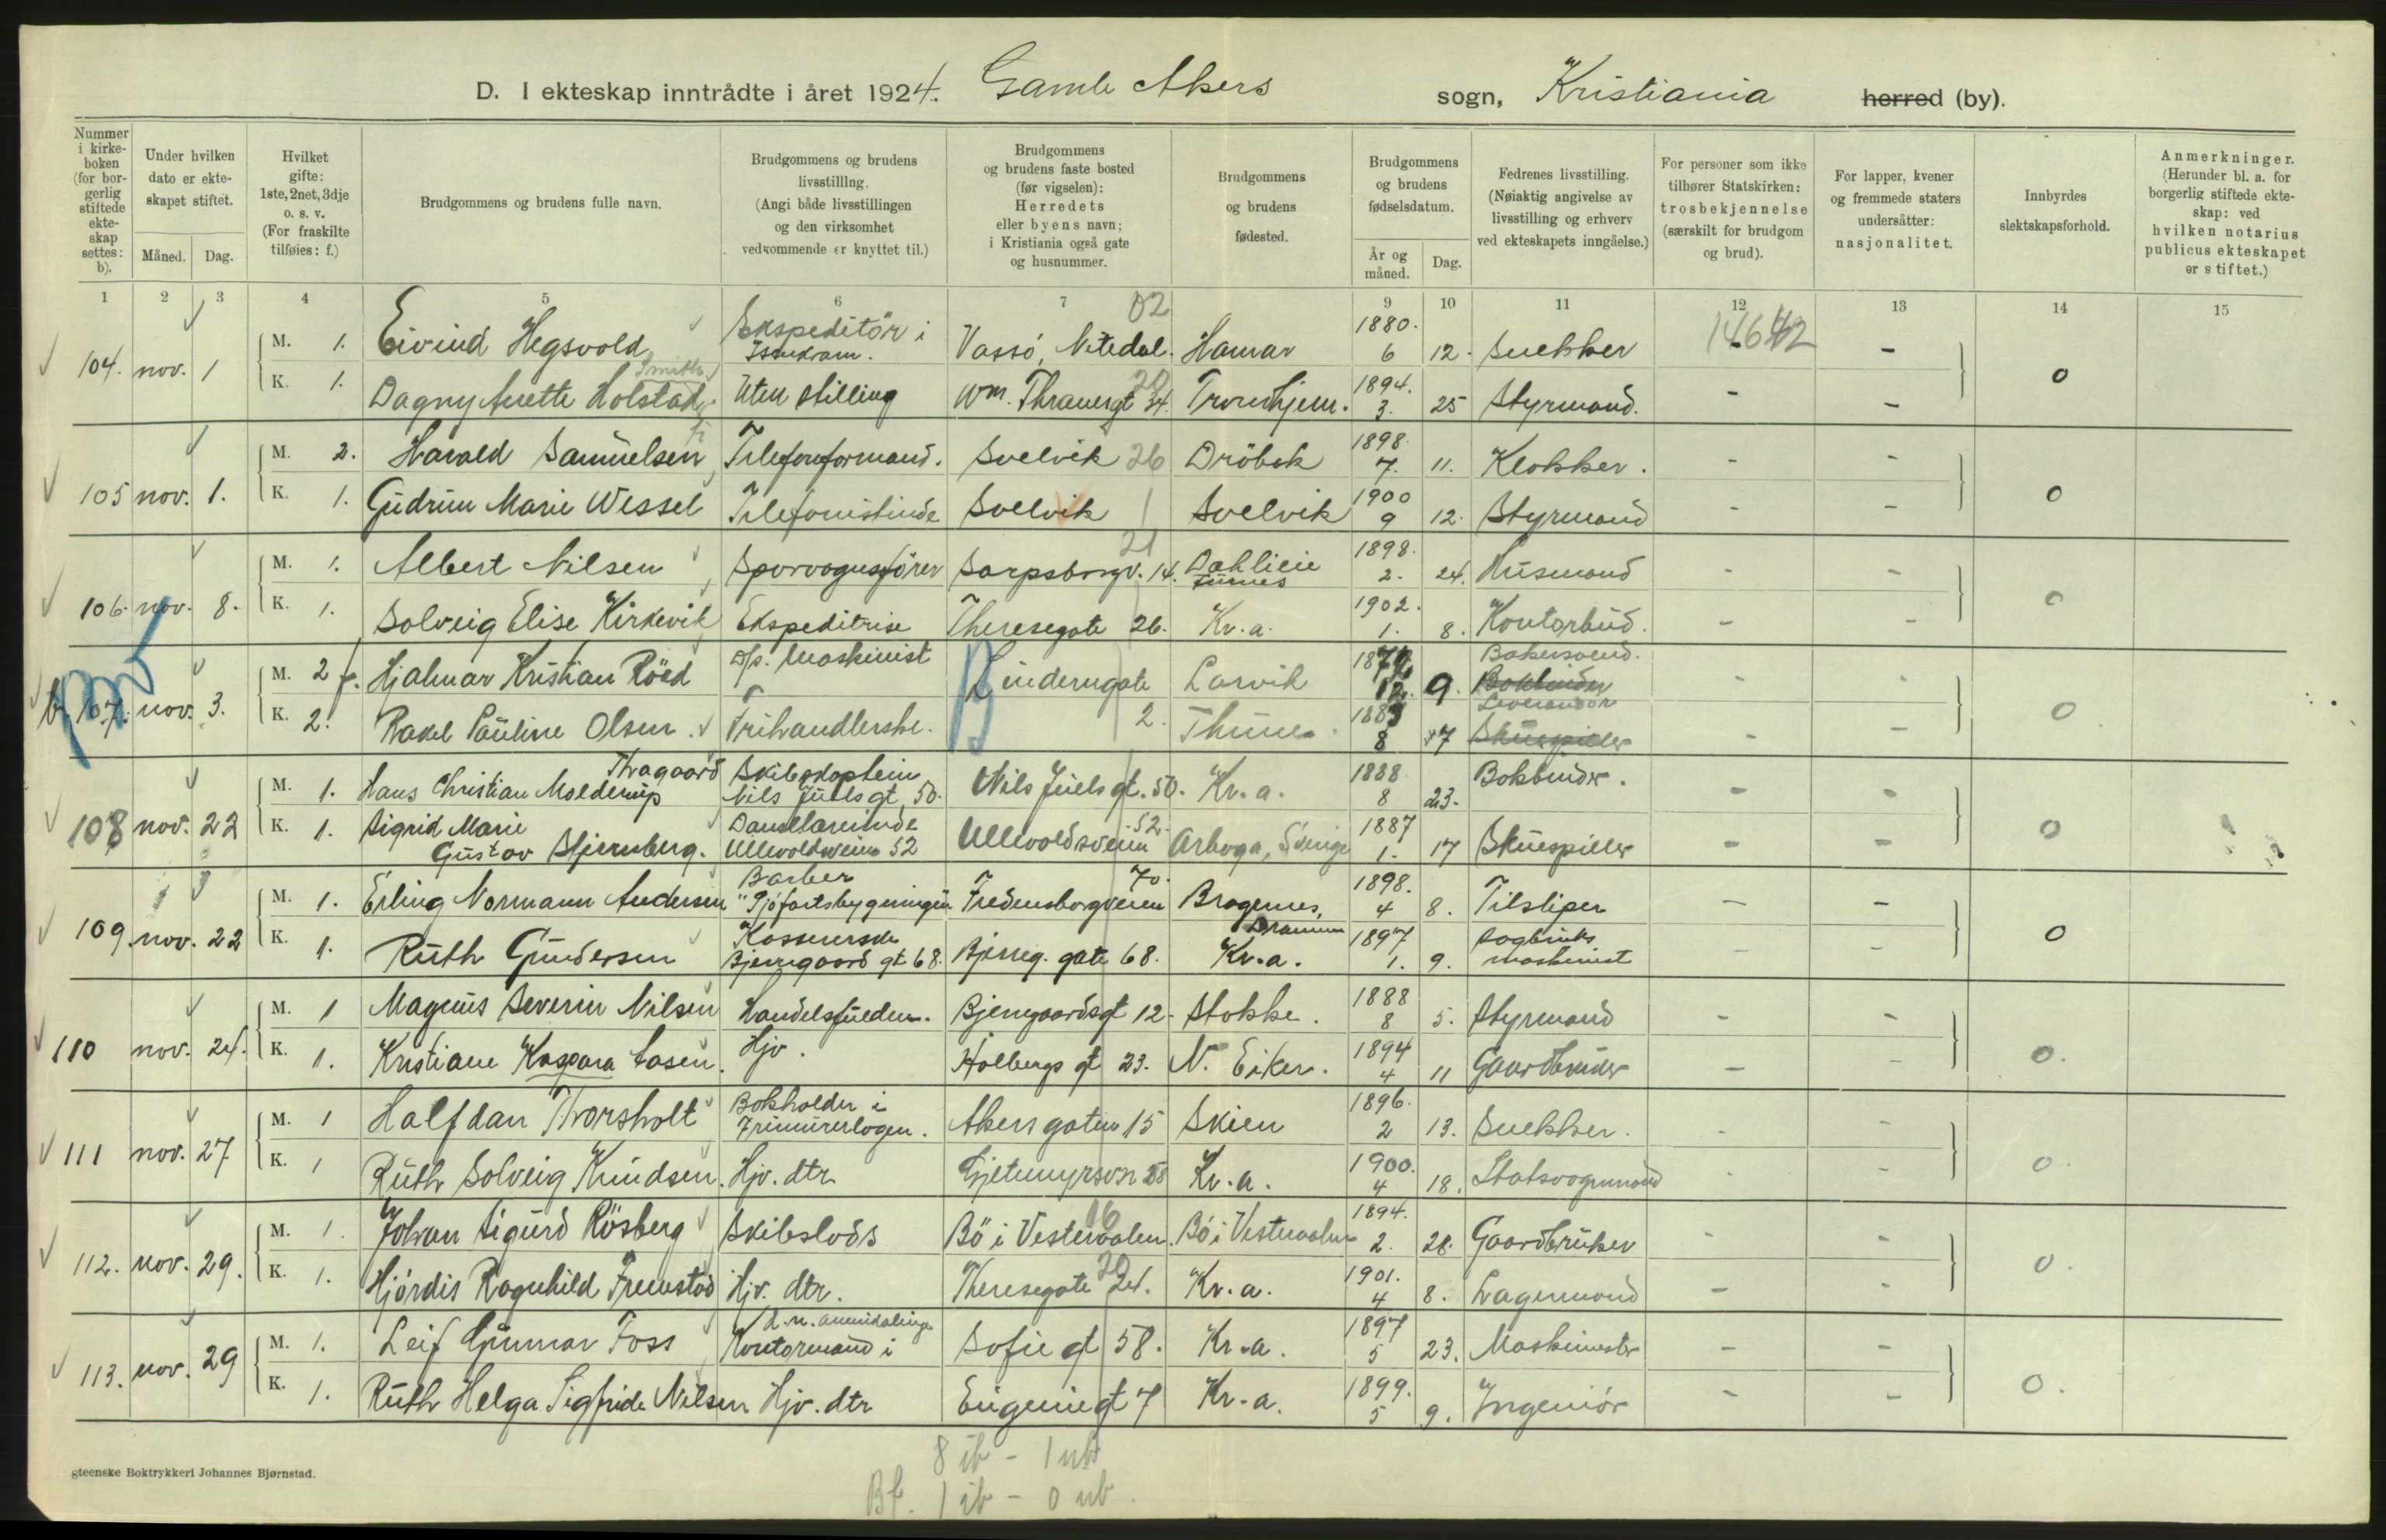 D. I ekteskap inntrådte i året 1924. Gamle Akers sogn, Kristiania herred (by).
Nummer i kirkeboken (for borgerlig stiftede ekteskap settes: b).
Under hvilken dato er ekteskapet stiftet.
Måned. Dag.
Hvilket gifte: 1ste, 2net, 3dje o. s. v. (For fraskilte tilføies: f.)
Brudgommens og brudens fulle navn.
Brudgommens og brudens livsstilling. (Angi både livsstillingen og den virksomhet vedkommende er knyttet til.)
Brudgommens og brudens faste bosted (før vigselen): Herredets eller byens navn; i Kristiania også gate og husnummer.
Brudgommens og brudens fødested.
Brudgommens og brudens fødselsdatum.
År og måned. Dag.
Fedrenes livsstilling. (Nøiaktig angivelse av livsstilling og erhverv ved ekteskapets inngåelse.)
For personer som ikke tilhører Statskirken: trosbekjennelse (særskilt for brudgom og brud).
For lapper, kvener og fremmede staters undersåtter: nasjonalitet.
Innbyrdes slektskapsforhold.
Anmerkninger. (Herunder bl. a. for borgerlig stiftede ekteskap: ved hvilken notarius publicus ekteskapet er stiftet.)
1 2 3 4 5 6 7 8 9 10 11 12 13 14 15
02 14642
104. nov. 1 M. 1. Eivind Hegsvold Ekspeditör i Isenkram. Vassö, Nitedal. Hamar 1880. 6 12. Snekker - -
K. 1. Dagny Anette Holstad Smith Uten stilling Wm. Thranesgt 34. 20 Trondhjem. 1894. 3. 25 Styrmand. - - 0
105 nov. 1. M. 2. Harald Samuelsen Telefonformand. Svelvik 26 Dröbak 1898. 7. 11. Klokker. - -
K. 1. Gudrun Marie Wessel Telefonistinde Svelvik Svelvik 1900 9 12. Styrmand - - 0
106. nov. 8. M. 1. Albert Nilsen Sporvognsförer Sarpsborgv. 14. 21 Dahlieie Furnes 1898. 2. 24. Husmand - -
K. 1. Solveig Elise Kirkevik Ekspeditrise Theresegate 26. Kr.a. 1902. 1. 8. Kontorbud. - - 0
b 107. nov. 3. M. 2 f. Hjalmar Kristian Röed D/s. Maskinist Linderngate 2. Larvik 12. 9. Bakersvend. Bokbinder - -
K. 2. Rakel Pauline Olsen. Frihandlerske. 1883 8 7 Leverandör Skuespiller - - 0
108 nov. 22 M. 1. Hans Christian Molderup Thragaard Skibskaptein Nils Juels gt. 50. Nils Juels gt. 50. Kr.a. 1888 8 23. Bokbinder. - -
K. 1. Sigrid Marie Gustav Stjernberg. Danselærerinde Ullevoldsveien 52 Ullevoldsveien 52. Arboga, Sverige 1887 1. 17 Skuespiller - - 0
109. nov. 22 M. 1. Erling Normann Andersen Barber "Sjöfartsbygningen Fredensborgveien 70. Bragernes, Drammen 1898. 4 8. Tilsliper - -
K. 1. Ruth Gundersen Kassererske Bjerregaards gt 68. Bjerreg. gate 68. Kr.a. 1897 1. 9. Sagbruks maskinist - - 0
110 nov. 24. M. 1 Magnus Severin Nilsen Handelsfuldm. Bjerregaardsgt 12. Stokke. 1888 8 5. Styrmand - -
K. 1. Kristiane Kaspara Aasen. Hjv. Holbergs gt 23. N. Eiker. 1894 4 11 Gaardbruker - - 0.
111 nov. 27 M. 1 Halfdan Thorsholt Bokholder i Frimurerlogen. Akersgaten 15 Skien 1896. 2 13. Snekker. - -
K. 1 Ruth Solveig Knudsen. Hjv. dtr. Gjetemyrsvn 28 Kr.a. 1900. 4 18. Statsvognmand - - 0.
112. nov. 29. M. 1. Johan Sigurd Rösberg Skibslods Bö i Vesteraalen. 16 Bö i Vesteraalen 1894. 2. 28. Gaardbruker - -
K. 1. Hjördis Ragnhild Fremstad Hjv. dtr. Theresegate 24. 20 Kr.a. 1901. 4 8. Lagermand - - 0.
113. nov. 29 M. 1. Leif Gunnar Foss Kontormand i d. n. amindalinge Sofie gt 58. Kr.a. 1897 5 23. Maskinmester - -
K. 1. Ruth Helga Sigfride Nilsen Hjv. dtr Eugeniegt 7 Kr.a. 1899. 5 9. Ingeniör - - 0.
8 ib - 1 ub
Bf. 1 ib - 0 ub.
steenske Boktrykkeri Johannes Bjørnstad.